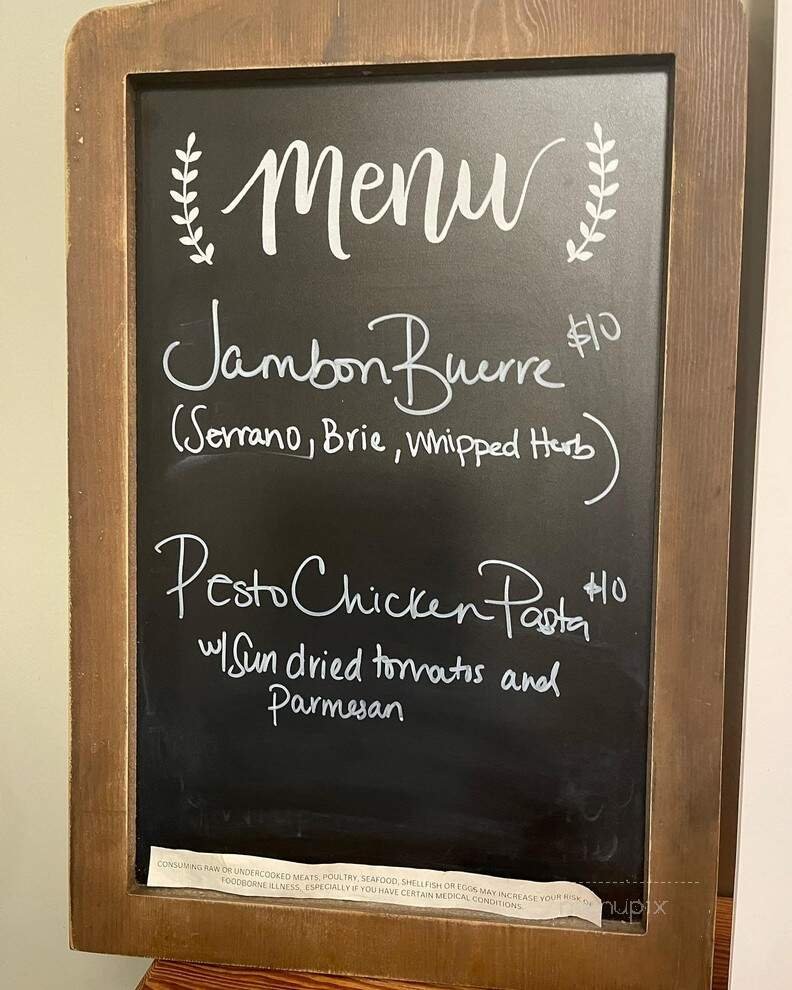 menu
Jambon Buerre $10
(Serrano, Brie, Whipped Herb)
Pesto Chicken Pasta $10
w/ Sun dried tomatos and
Parmesan
CONSUMING RAW OR UNDERCOOKED MEATS, POULTRY, SEAFOOD, SHELLFISH OR EGGS MAY INCREASE YOUR RISK OF
FOODBORNE ILLNESS, ESPECIALLY IF YOU HAVE CERTAIN MEDICAL CONDITIONS.
menupix